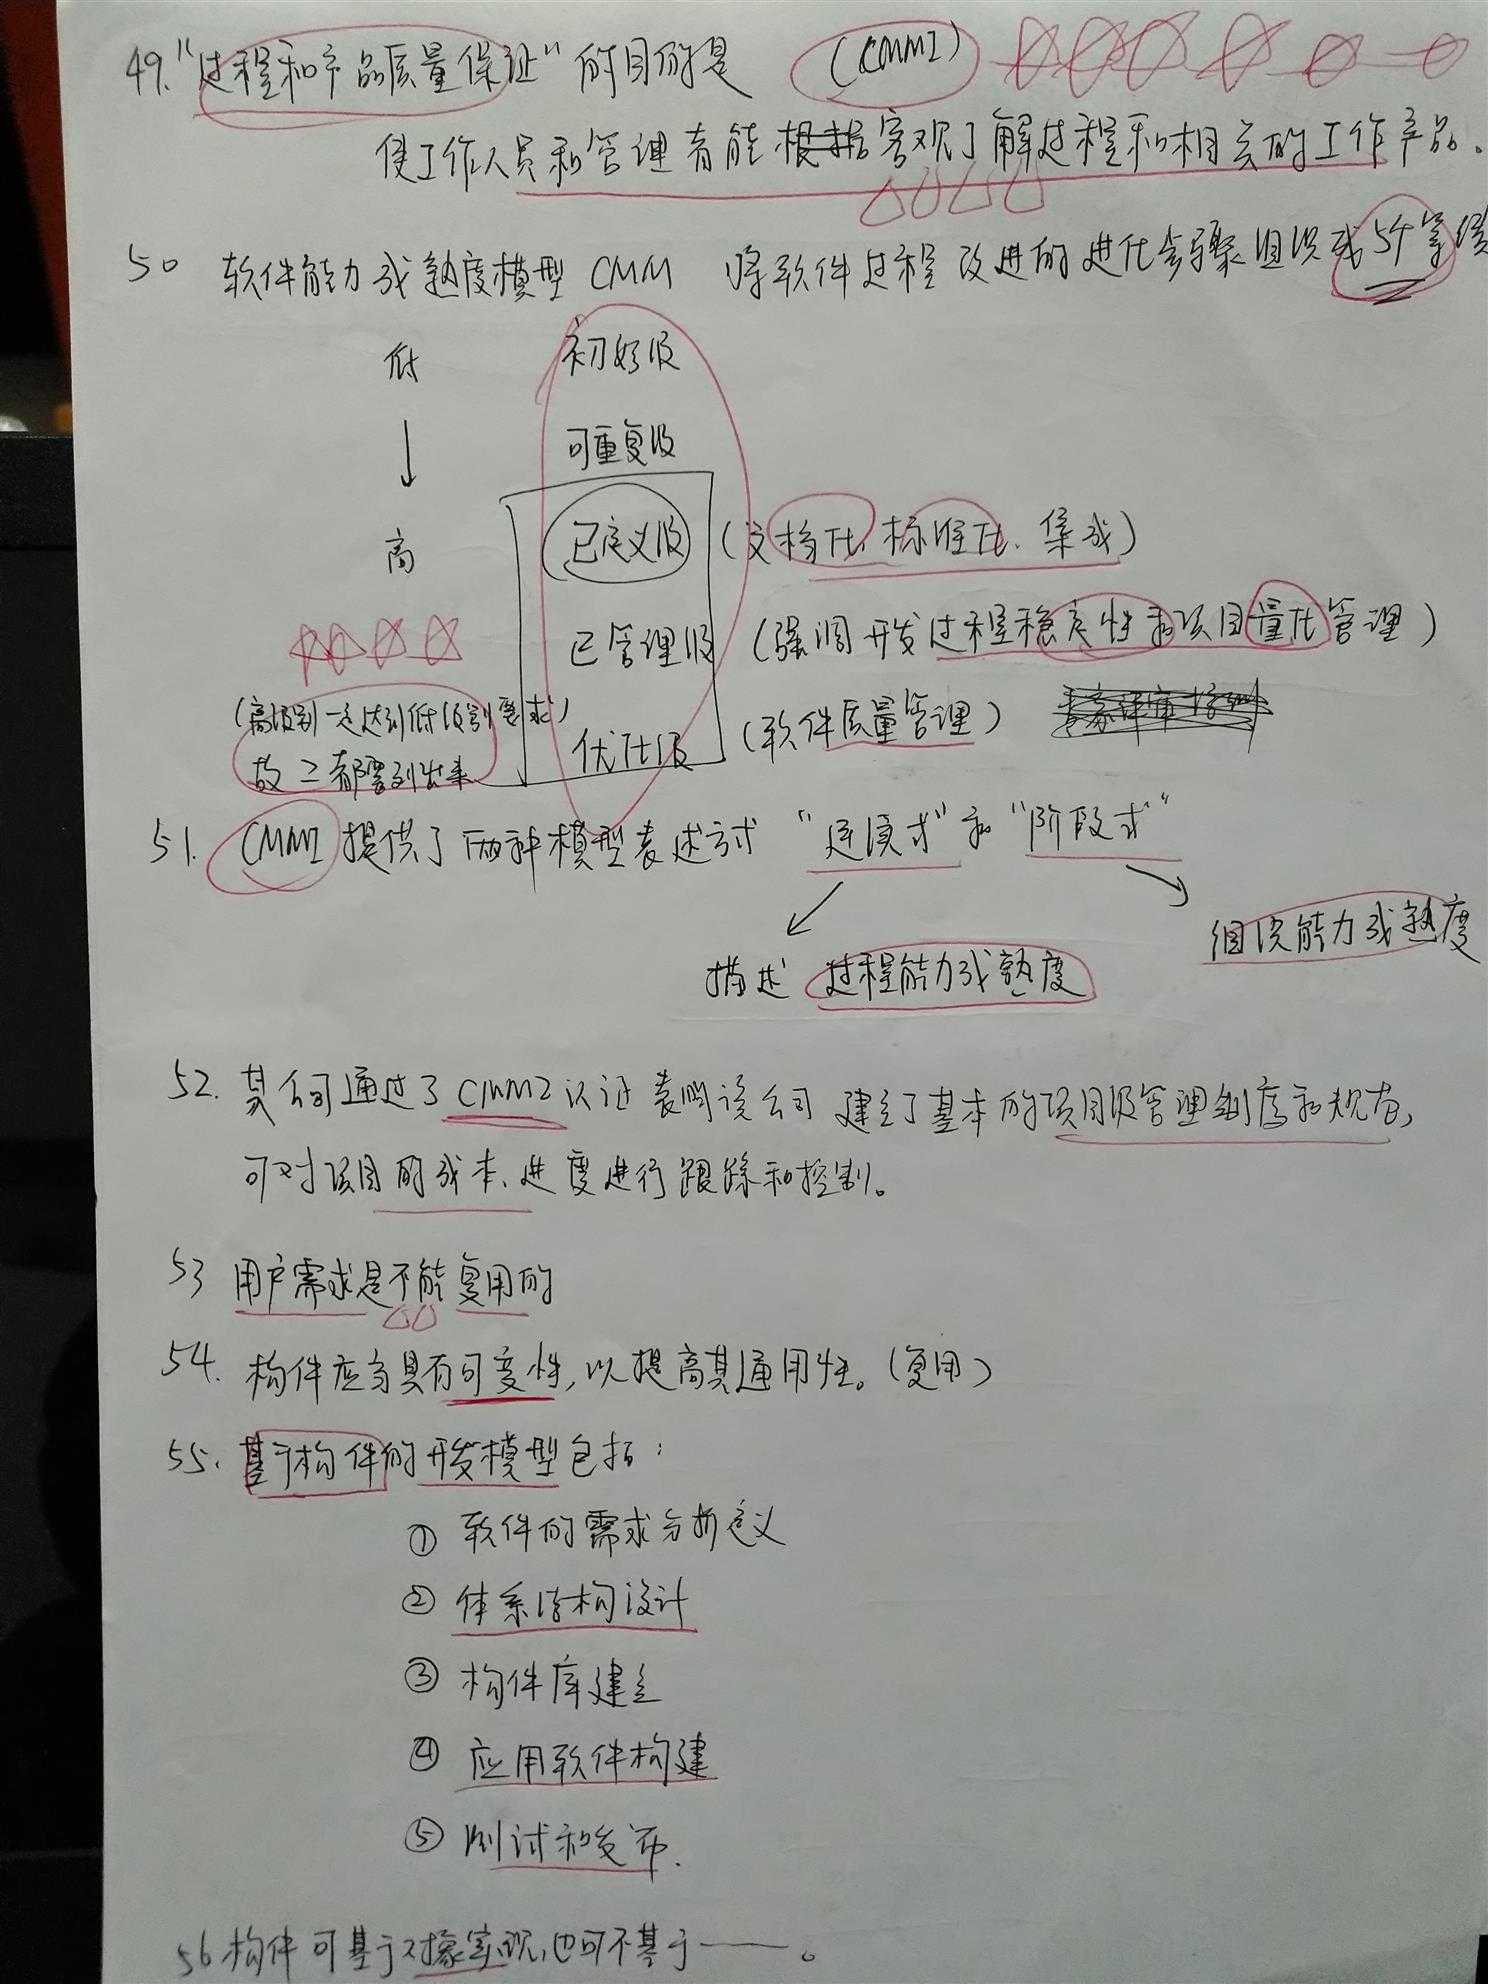 49. "过程和产品质量保证"的目的是 (CMMI)
使工作人员和管理者能客观了解过程和相关的工作产品。
50 软件能力成熟度模型 CMM 将软件过程改进的进化步骤组织成5个等级
低 初始级
可重复级
高 已定义级 (文档化、标准化、集成)
已管理级 (强调开发过程稳定性和项目量化管理)
(高级别一定达到低级别要求)
故三都要列出来
优化级 (软件质量管理)
51. CMMI 提供了两种模型表述方式 "连续式"和"阶段式"
组织能力成熟度
描述 过程能力成熟度
52. 某公司通过了CMM2认证表明该公司建立了基本的项目级管理制度和规范,
可对项目的成本、进度进行跟踪和控制。
53 用户需求是不能复用的
54. 构件应当具有可变性,以提高其通用性。(复用)
55. 基于构件的开发模型包括:
① 软件的需求分析定义
② 体系结构设计
③ 构件库建立
④ 应用软件构建
⑤ 测试和发布.
56 构件可基于对象实现,也可不基于——。